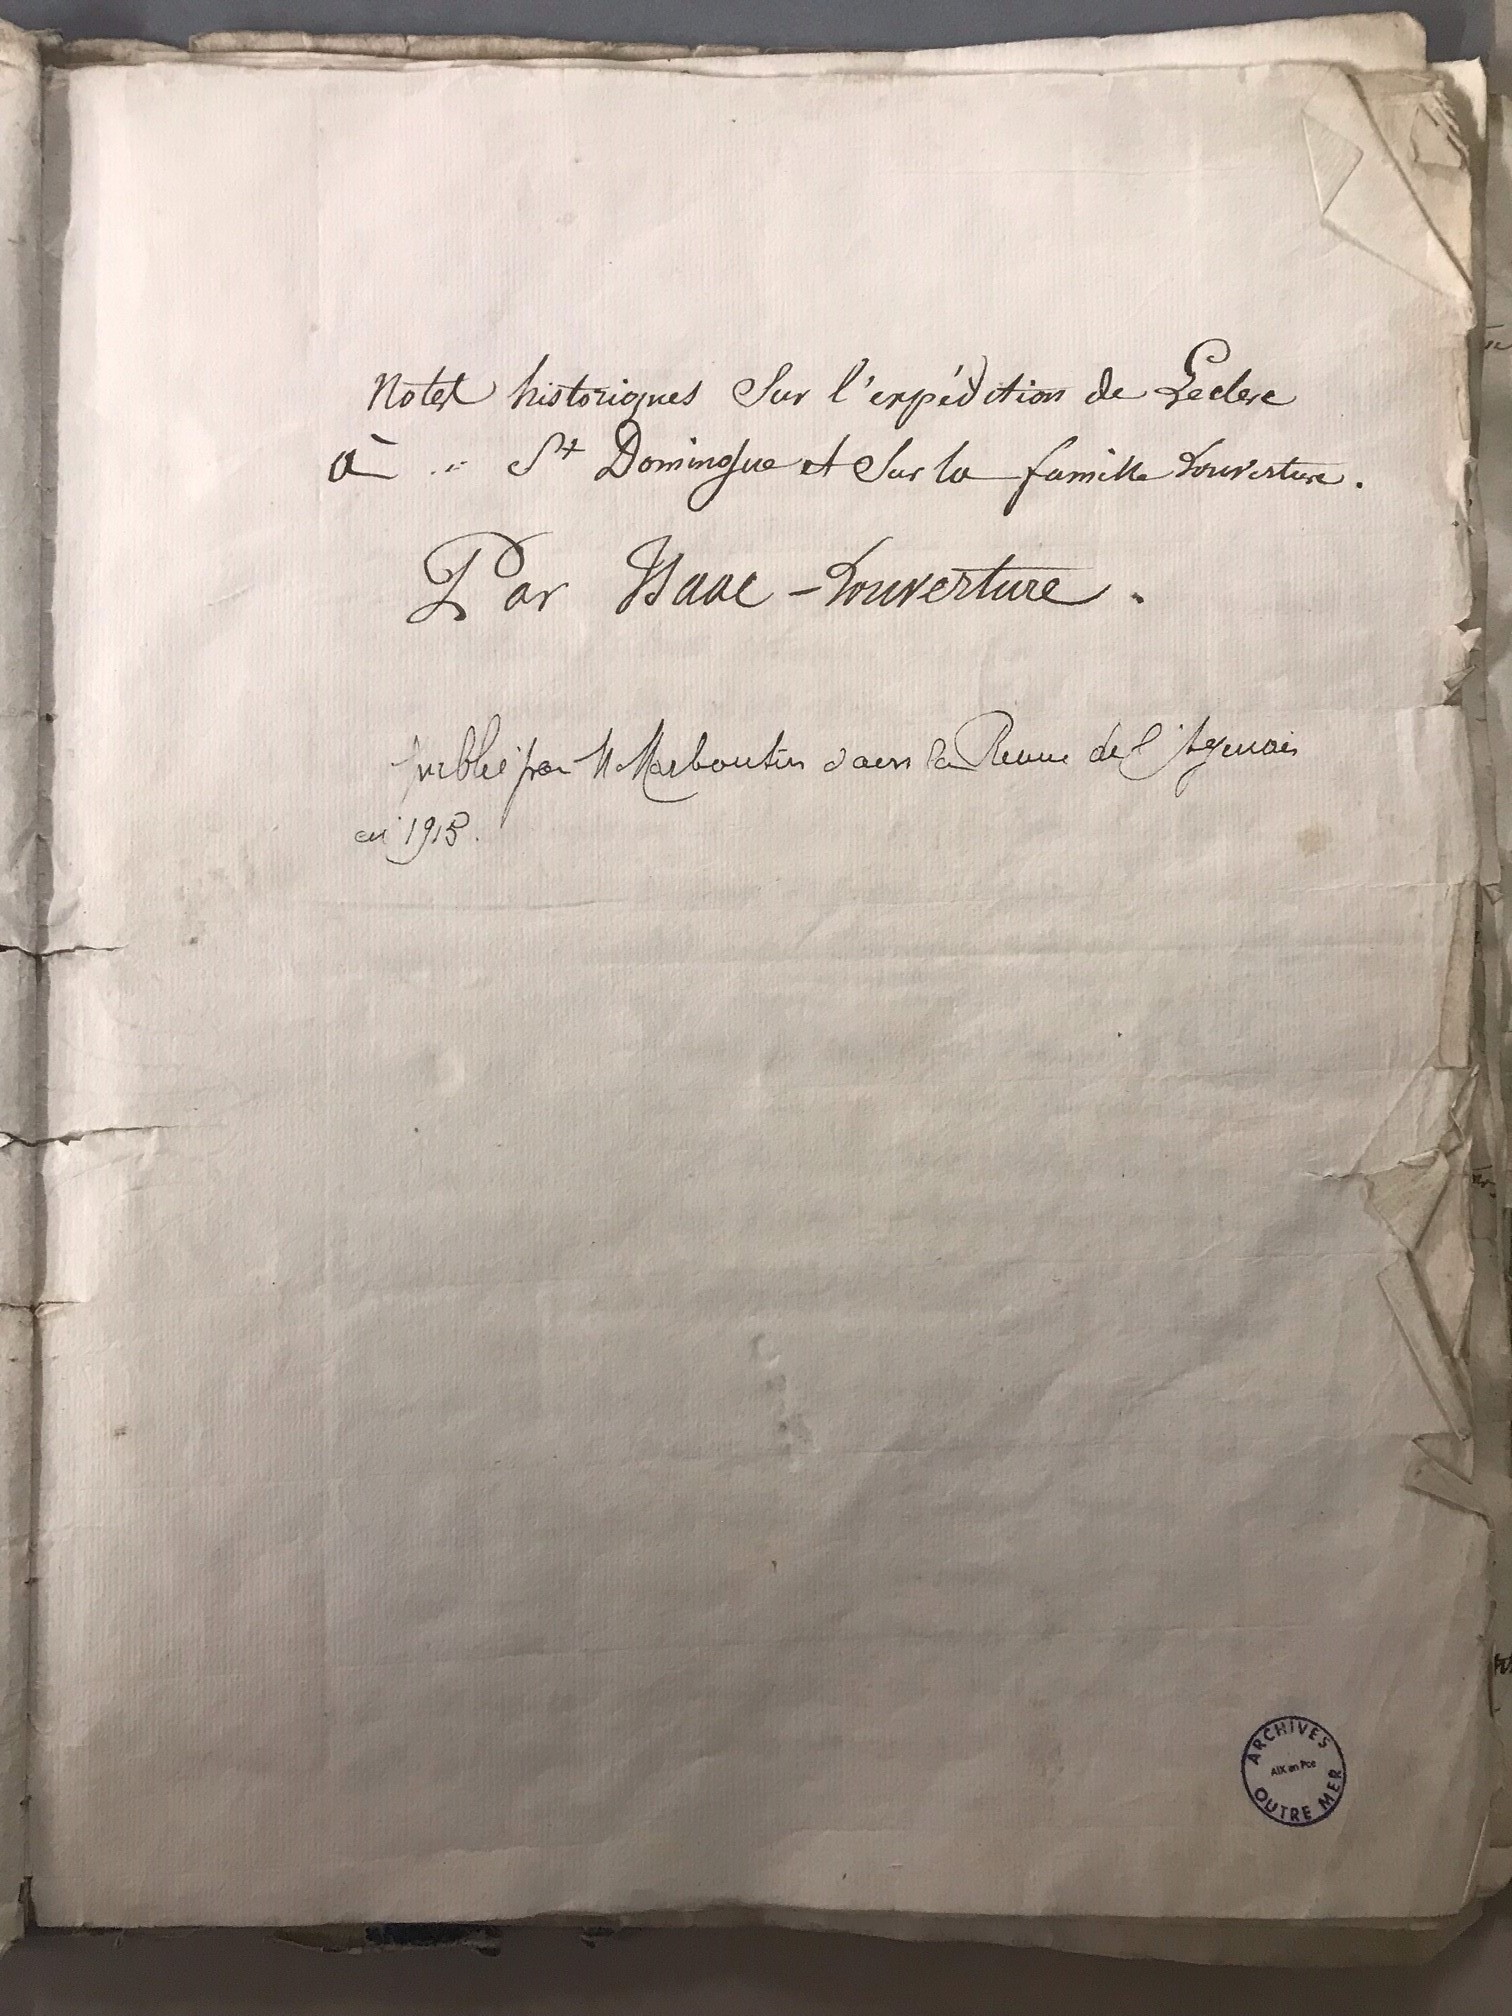 Notes historiques Sur l'expédition de Leclerc
à St Domingue et Sur la famille Louverture.
Par Isaac - Louverture.
publié par M Marboutin dans la Revue de l'Agenais
en 1915.
ARCHIVES
AIX en Pce
OUTRE MER